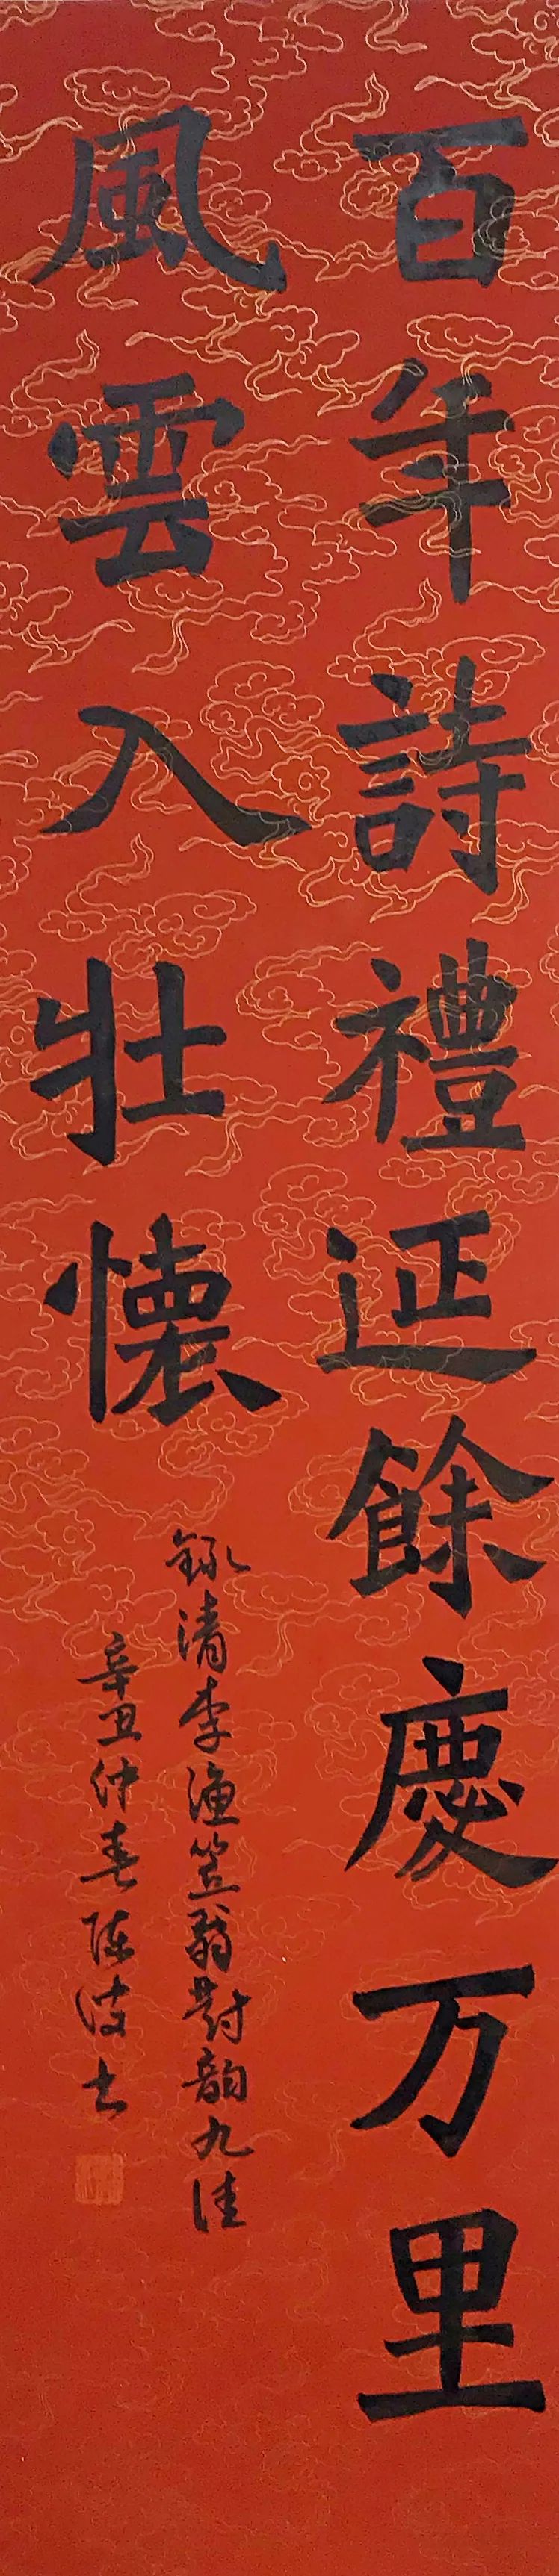 百年詩禮延餘慶万里
風雲入壯懷
録清李漁笠翁對韵九佳
辛丑仲春陈波书